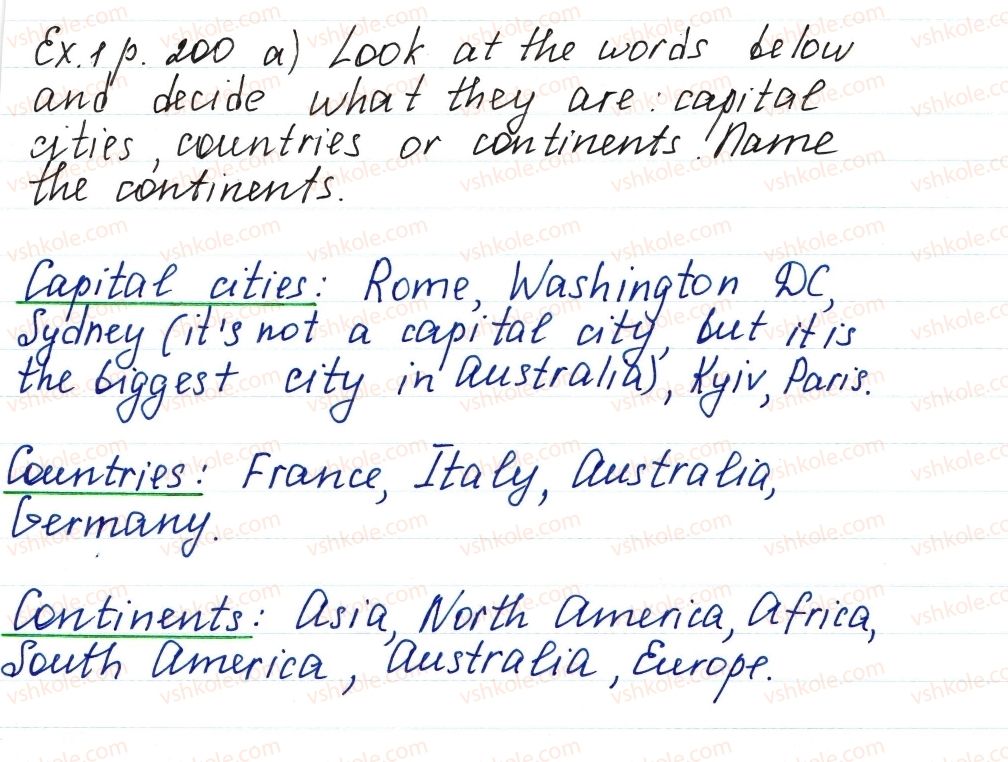 Ex. 1 p. 200 a) Look at the words below
and decide what they are: capital
cities, countries or continents. Name
the continents.
Capital cities: Rome, Washington DC,
Sydney (it's not a capital city, but it is
the biggest city in Australia), Kyiv, Paris.
Countries: France, Italy, Australia,
Germany.
Continents: Asia, North America, Africa,
South America, Australia, Europe.
vshkole.com